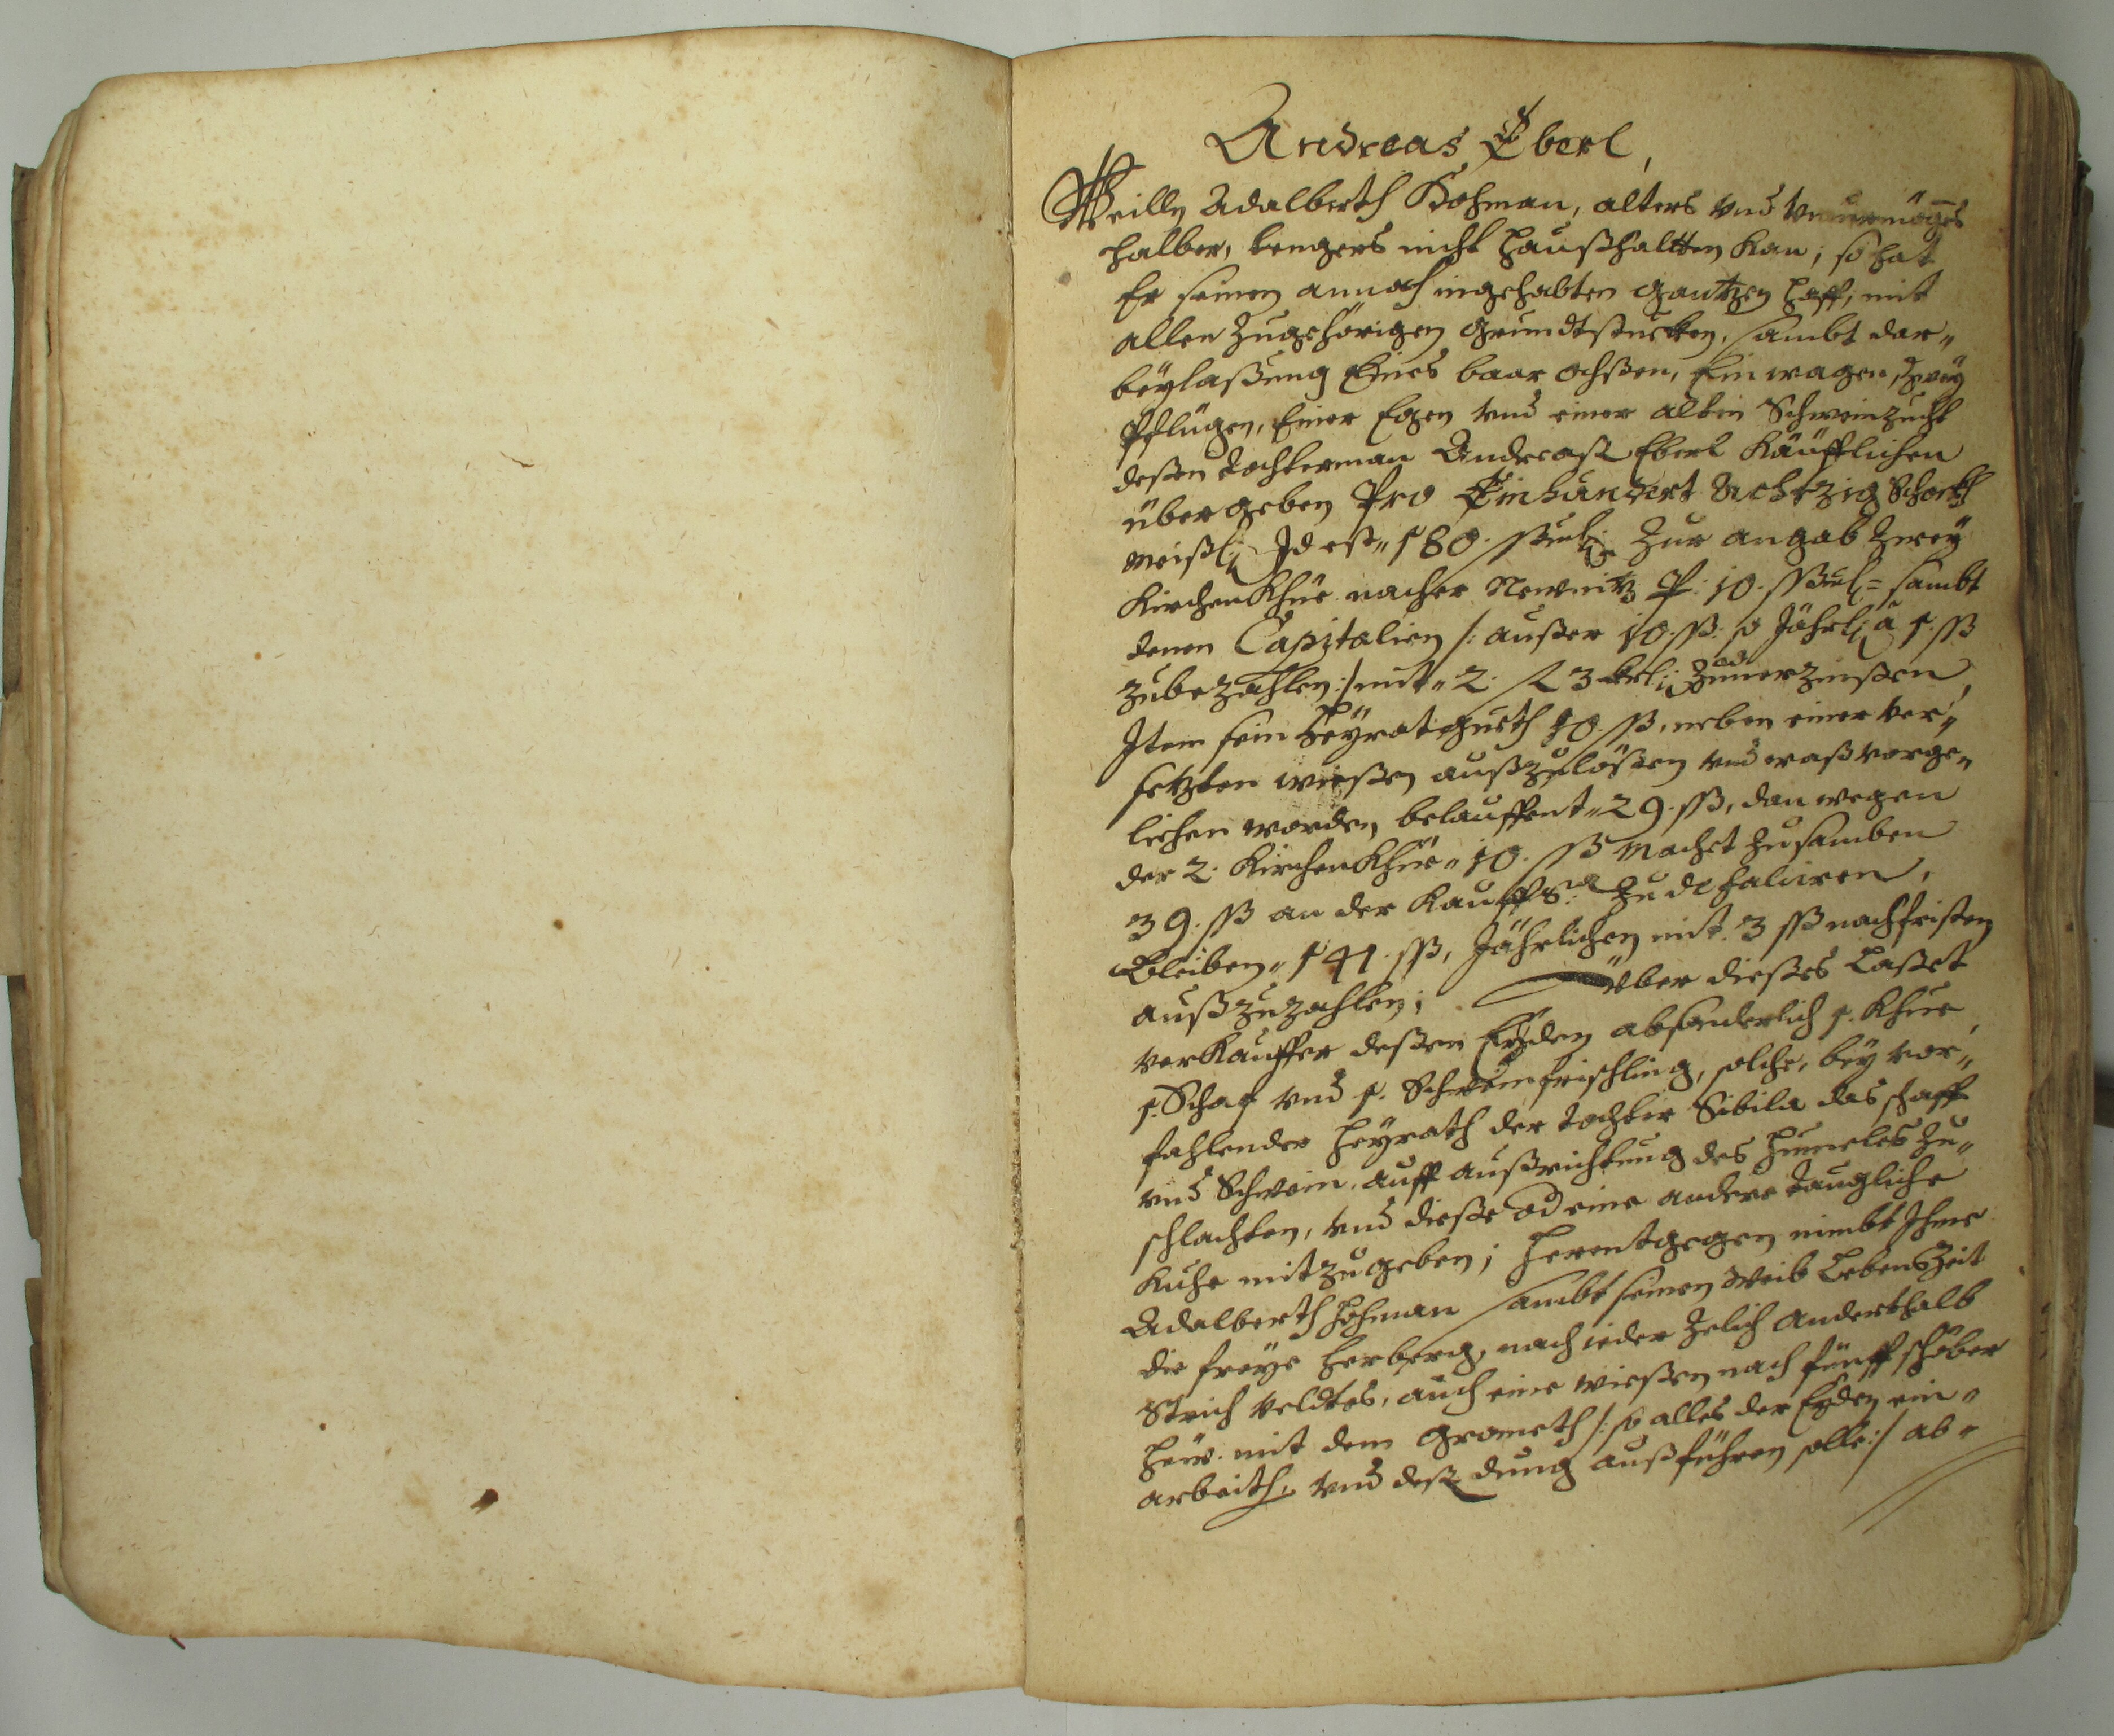 Andreas Eberl,
Weilln Adalberth Hohman, alters vnd vnuermögens
halber, lengers nicht haußhaltten kan; so hat
Er seinen annoch ingehabten gantzen hoff, mit
allen zugehörigen grundtstuckhen, sambt dar„
beylaßung Eines baar ochßen, Ein wagen, Zweÿ
Pflügen, Einer Egen vnd einer alten Schweinzucht
deßen Tochterman Andreaß Eberl Käüfflichen
übergeben Pro Einhundert Achtzig Schockh
meißl: Id est„ 180. ßml: Zur angab Zweÿ
Kirchen Khüe nacher P: 10. ßml= sambt
denen Capitalien /: außer 10. ß: so Jährl: â 1. ß
zubezahlen :/ mit„ 2. 23
Item sein Heÿratgueth 10. ß, neben einer ver„
setzten wießen außzulößen vnd waß vorge„
liehen worden, belauffent„ 29. ß, dan wegen
der 2. Kirchen Khüe„ 10. ß Machet zusamben
39. ß an der Kauffs: zu defalciren,
Bleiben„ 141. ß, Jährlichen mit 3 ß nachfristen
außzuzahlen; Über dießes Laßet
verkauffer deßen Eÿden absonderlich 1. Khue,
1. Schaf vnd 1. Schweinfrischling, solche, beÿ vor„
fahlender heÿrath der Tochter Sibila das schaff
vnd Schwein, auff außrichtung des zu„
schlachten, vnd dieße od eine andere taugliche
Kuhe mitzugeben; Herentgegen nimbt Ihme
Adalberth Hohman sambt seinen Weib Lebenszeit
die freÿe Herberg, nach ieder Anderthalb
Strich veldtes, auch eine wießen nach fünff schober
heü mit dem Grometh /: so alles der Eÿden ein„
arbeith, vnd deß dung außführen solle :/ ab„